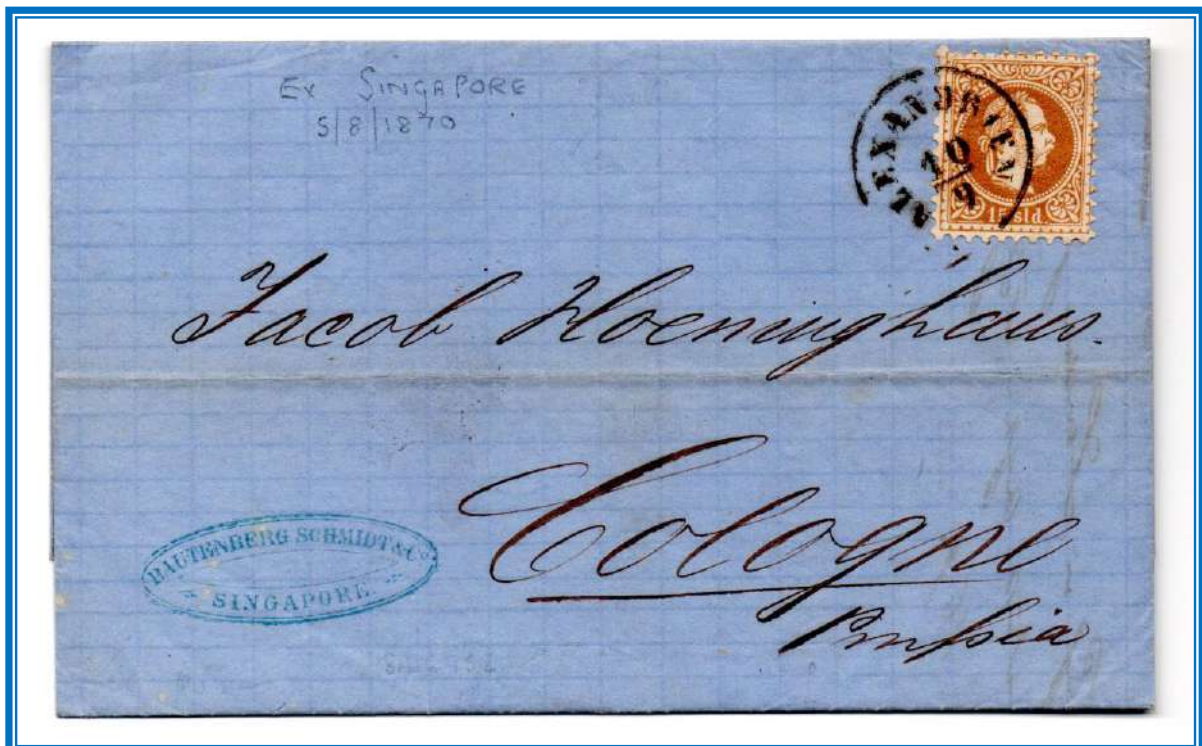 Ex SINGAPORE
5/8/1870
ALEXANDRIEN
10/9
15 sld.
Jacob Hoeninghaus.
Cologne
Prussia
RAUTENBERG SCHMIDT & Co
SINGAPORE